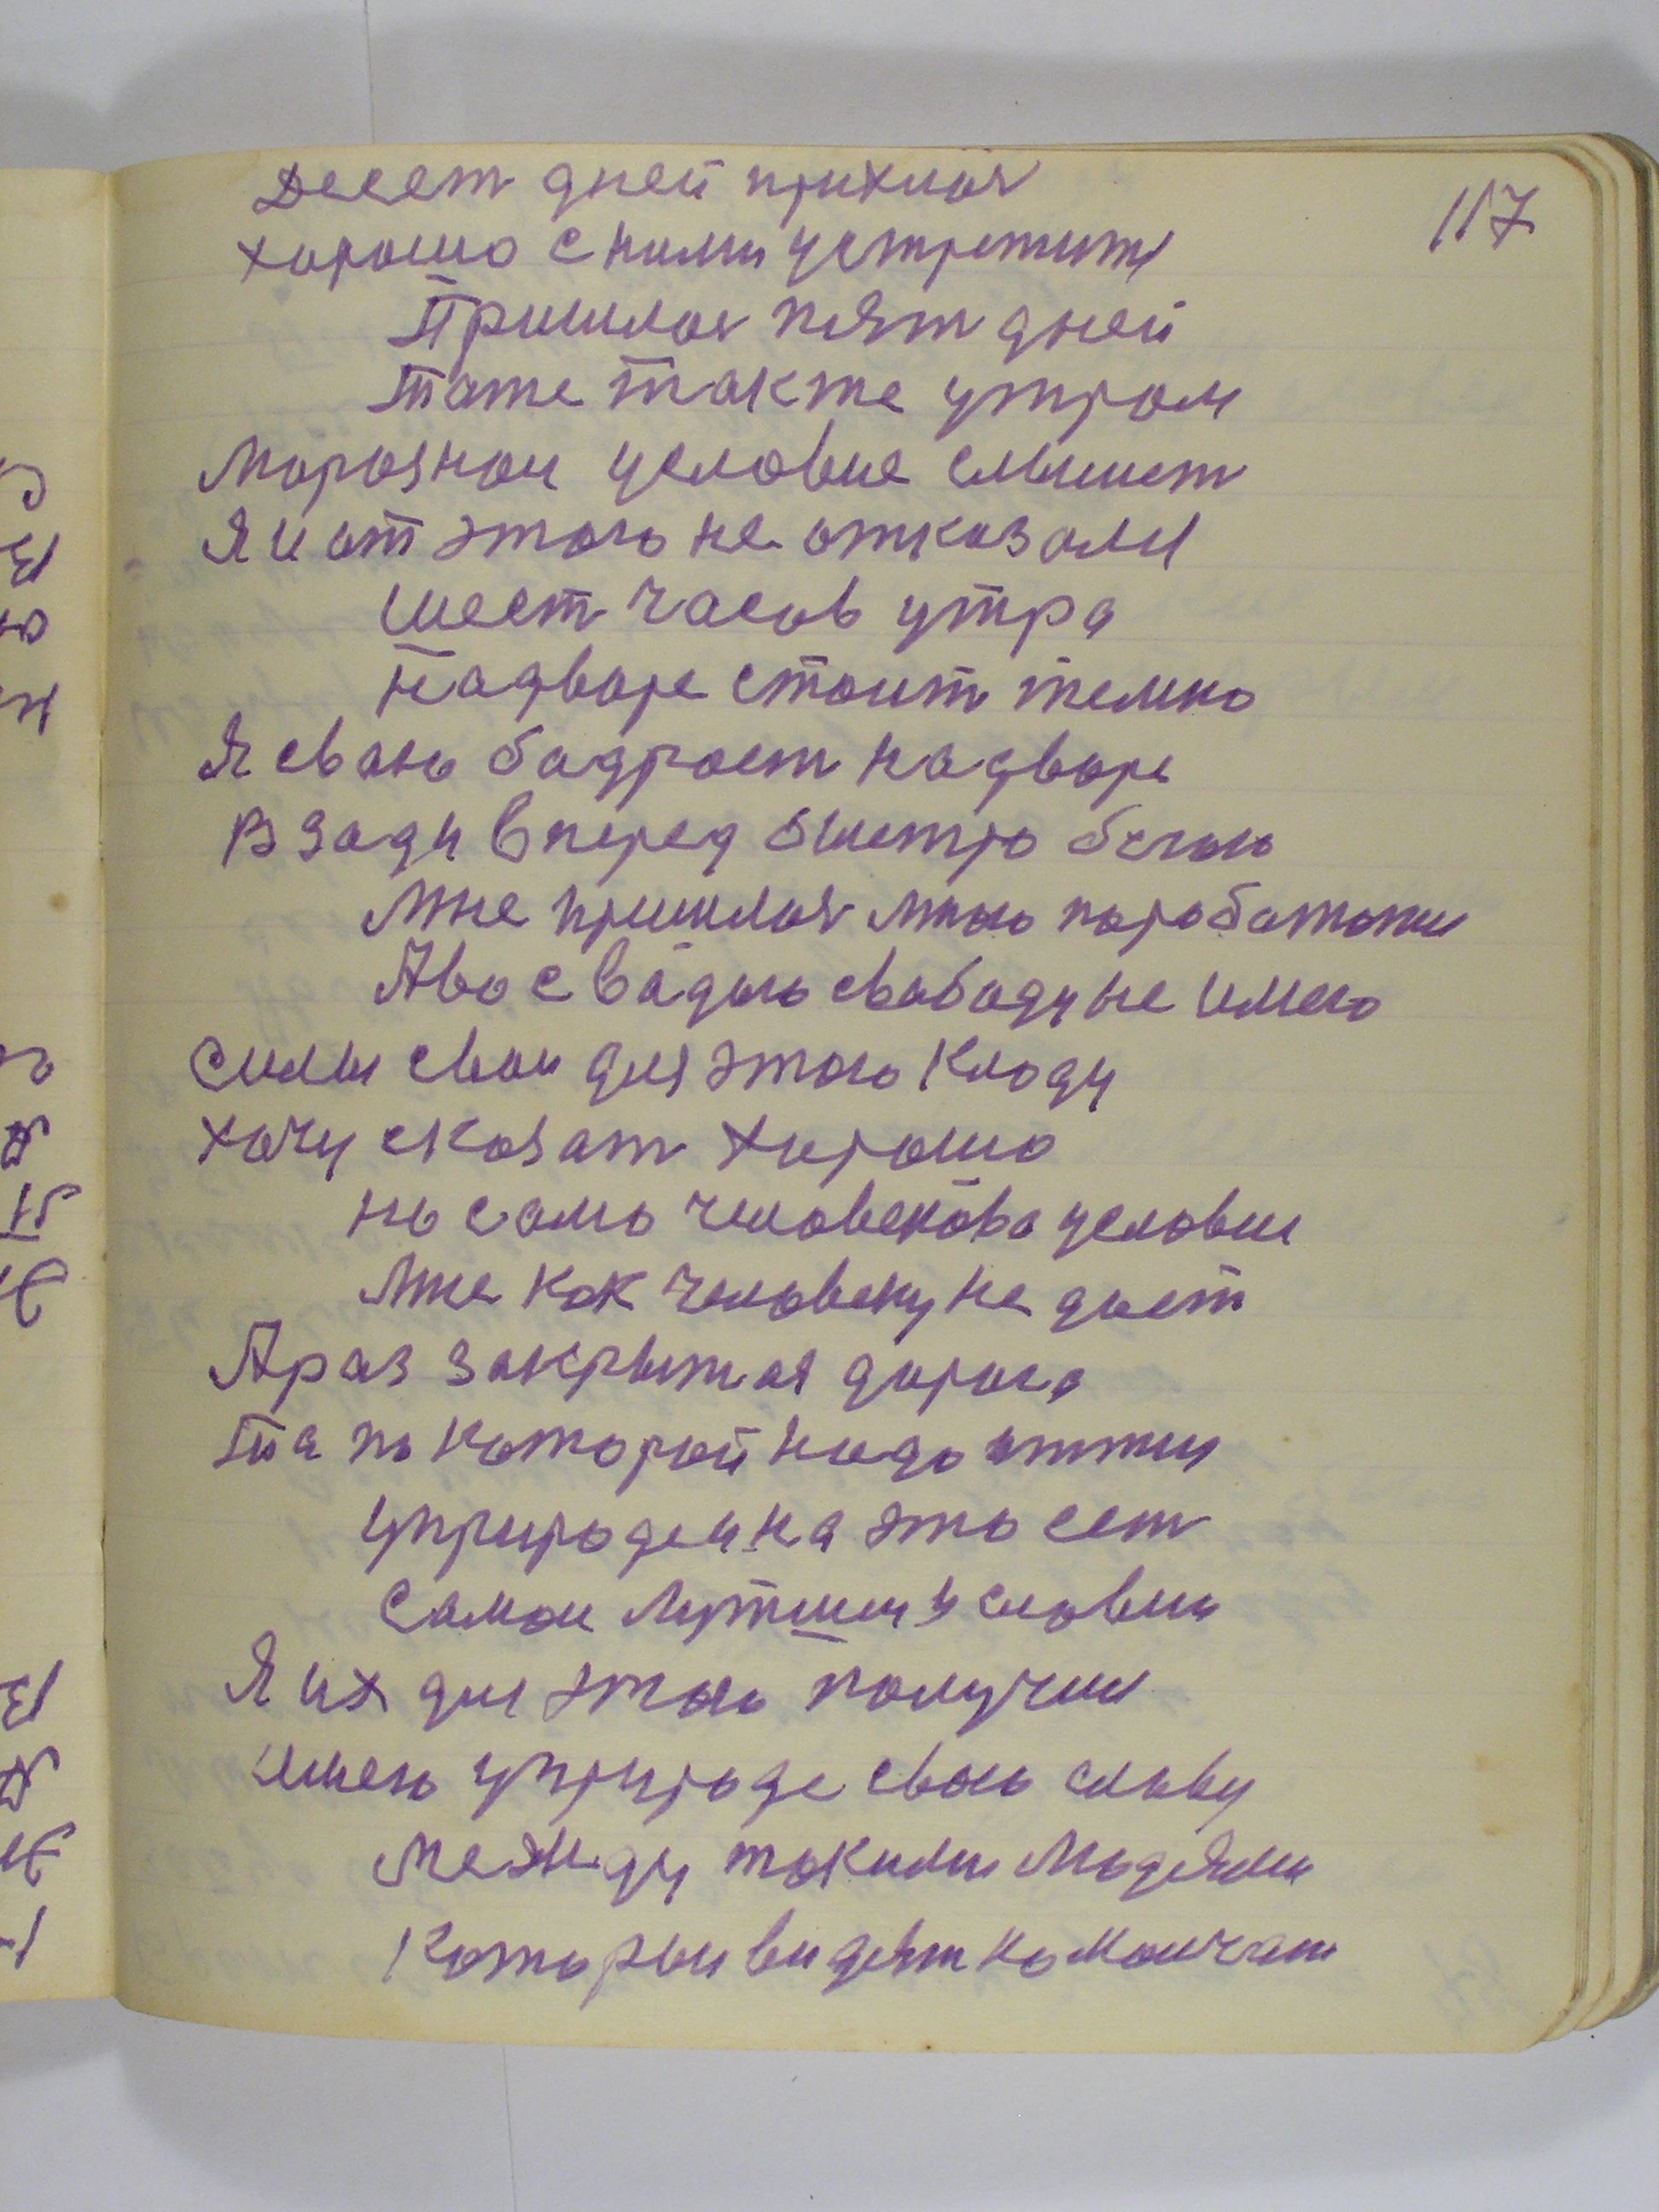 117
Десет дней прихлоя
хорошо с ними устретит
Пришлоя пят дней
Таже также утром
Морозное условие слышет
Я и от этого не отказаля
шест часов утра
Надворе стоит темно
Я сваю бадрост надворе
В зади вперед быстро бегаю
Мне пришлоя много поработати
Аво с вадою свабоду не имею
силы сваи для этого кладу
хочу сказат хорошо
но само человекова условие
Мне как человеку не дает
А раз закрытая дорога
Та по которой надо иттии
уприроде и на это ест
Самаи лутшии условии
Я их для этого получил
имею уприроде сваю славу
Между такими людями
Каторыи видят но молчат